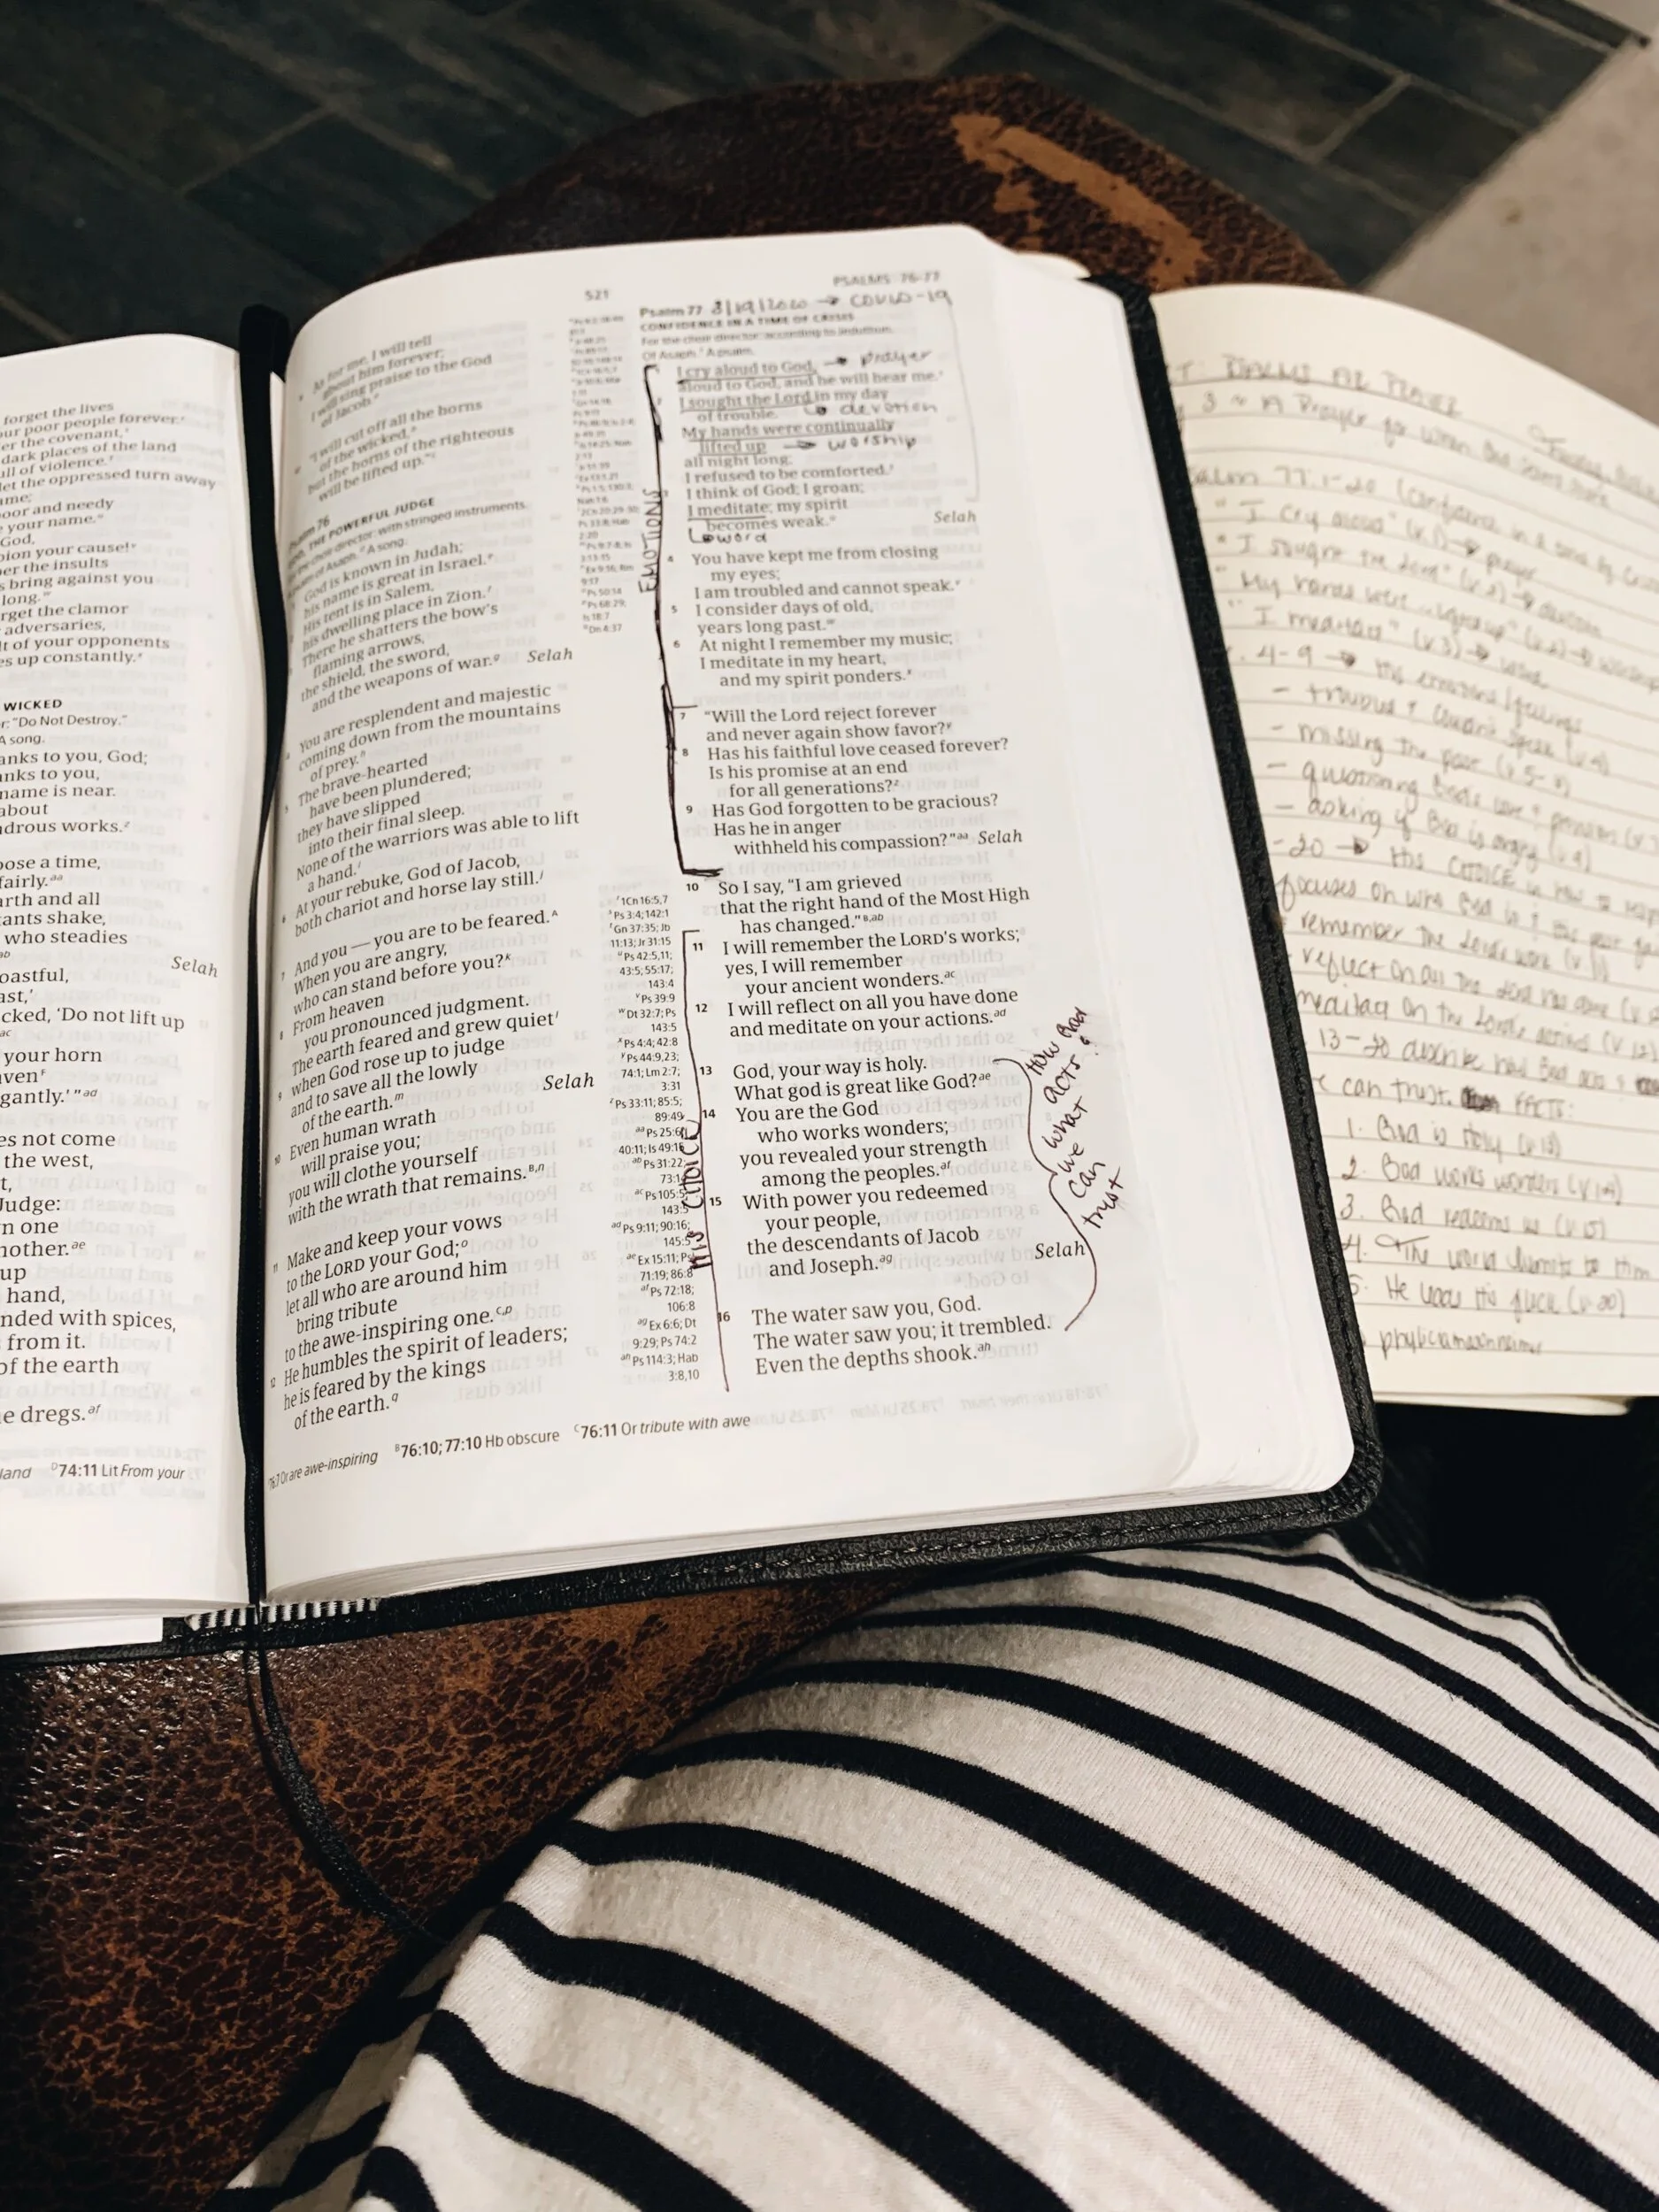 forget the lives
our poor people forever.
er the covenant,
dark places of the land
ull of violence.
let the oppressed turn away
ame;
poor and needy
your name.
God,
pion your cause!
er the insults
s bring against you
long.
rget the clamor
adversaries,
lt of your opponents
es up constantly.
WICKED
r: "Do Not Destroy."
A song.
anks to you, God;
anks to you,
name is near.
about
drous works.
ose a time,
fairly.
arth and all
tants shake,
who steadies
Selah
oastful,
ast,'
cked, 'Do not lift up
your horn
aven
gantly.' "
es not come
the west,
t,
Judge:
n one
nother.
up
hand,
nded with spices,
from it.
of the earth
e dregs.
land D74:11 Lit From your
521
PSALMS 76-77
As for me, I will tell
about him forever;
I will sing praise to the God
of Jacob.
"I will cut off all the horns
of the wicked,
but the horns of the righteous
will be lifted up."
Psalm 76
GOD, THE POWERFUL JUDGE
For the choir director: with stringed instruments.
A psalm of Asaph. A song.
God is known in Judah;
his name is great in Israel.
His tent is in Salem,
his dwelling place in Zion.
There he shatters the bow's
flaming arrows,
the shield, the sword,
and the weapons of war. Selah
You are resplendent and majestic
coming down from the mountains
of prey.
The brave-hearted
have been plundered;
they have slipped
into their final sleep.
None of the warriors was able to lift
a hand.
At your rebuke, God of Jacob,
both chariot and horse lay still.
And you — you are to be feared.
When you are angry,
who can stand before you?
From heaven
you pronounced judgment.
The earth feared and grew quiet
when God rose up to judge
and to save all the lowly
of the earth. Selah
Even human wrath
will praise you;
you will clothe yourself
with the wrath that remains.
Make and keep your vows
to the LORD your God;
let all who are around him
bring tribute
to the awe-inspiring one.
He humbles the spirit of leaders;
he is feared by the kings
of the earth.
76:7 Or are awe-inspiring B76:10; 77:10 Hb obscure C76:11 Or tribute with awe
1Ch 16:5,7
Ps 3:4; 142:1
Gn 37:35; Jb
11:13; Jr 31:15
Ps 42:5,11;
43:5; 55:17;
143:4
Ps 39:9
Dt 32:7; Ps
143:5
Ps 4:4; 42:8
Ps 44:9,23;
74:1; Lm 2:7;
3:31
Ps 33:11; 85:5;
89:49
Ps 25:6
40:11; Is 49:15
Ps 31:22;
Ps 105:5
143:5
Ps 9:11; 90:16;
145:5
Ex 15:11; Ps
71:19; 86:8
Ps 72:18;
106:8
Ex 6:6; Dt
9:29; Ps 74:2
Ps 114:3; Hab
3:8,10
Psalm 77 3/19/2020 → COVID-19
CONFIDENCE IN A TIME OF CRISIS
For the choir director: according to Jeduthun.
Of Asaph. A psalm.
I cry aloud to God, → prayer
aloud to God, and he will hear me.
I sought the Lord in my day
of trouble. → devotion
My hands were continually
lifted up → worship
all night long;
I refused to be comforted.
I think of God; I groan;
I meditate; my spirit
becomes weak. Selah
word
EMOTIONS
4 You have kept me from closing
my eyes;
I am troubled and cannot speak.
5 I consider days of old,
years long past.
6 At night I remember my music;
I meditate in my heart,
and my spirit ponders.
7 "Will the Lord reject forever
and never again show favor?
8 Has his faithful love ceased forever?
Is his promise at an end
for all generations?
9 Has God forgotten to be gracious?
Has he in anger
withheld his compassion?" Selah
10 So I say, "I am grieved
that the right hand of the Most High
has changed."
11 I will remember the LORD's works;
yes, I will remember
your ancient wonders.
12 I will reflect on all you have done
and meditate on your actions.
HIS CHOICE
13 God, your way is holy.
What god is great like God?
14 You are the God
who works wonders;
you revealed your strength
among the peoples.
15 With power you redeemed
your people,
the descendants of Jacob
and Joseph. Selah
16 The water saw you, God.
The water saw you; it trembled.
Even the depths shook.
How God
acts &
what
we
can
trust
3 ~ A Prayer for when
Psalm 77:1-20 (Confidence in a time of Crisis
"I cry aloud" (v.1) → prayer
"I sought the Lord" (v.2) → devotion
"My hands were
"I meditate" (v.3) → word
4-9 → His emotions/feelings
- troubled & cannot speak (v.4)
- missing the past (v.5-6)
- questioning God's love & promises (v.
- asking if God is angry (v.9)
-20 → His CHOICE in how to
focuses on who God is &
remember the Lord's work (v.11)
reflect on all the Lord has done (v.12
meditate on the Lord's actions (v.12)
13-20 describe how God acts &
we can trust. FACTS:
1. God is Holy (v.13)
2. God works wonders (v.14)
3. God redeems us (v.15)
4. The world submits to Him
5. He leads His flock (v.20)